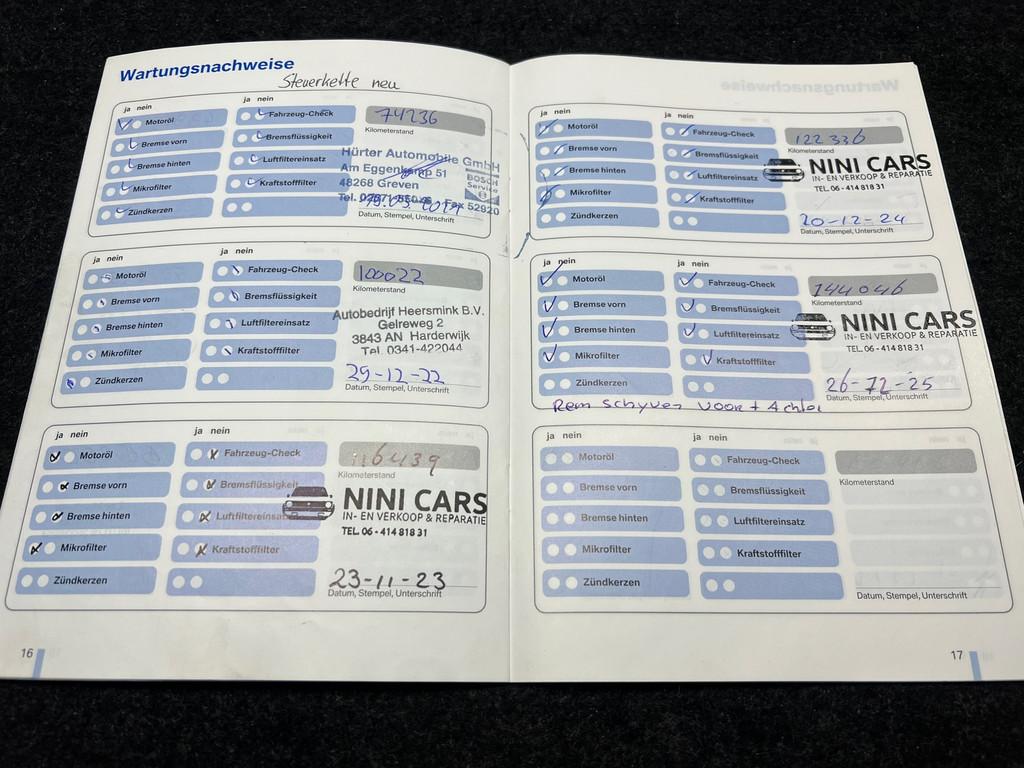 Wartungsnachweise
Steuerkette neu
ja nein
ja nein
Motoröl
Fahrzeug-Check
74236
Kilometerstand
Bremse vorn
Bremsflüssigkeit
Bremse hinten
Luftfiltereinsatz
Mikrofilter
Kraftstofffilter
Zündkerzen
Hürter Automobile GmbH
Am Eggenkamp 51
48268 Greven
BOSCH
Service
Datum, Stempel, Unterschrift
ja nein
ja nein
Motoröl
Fahrzeug-Check
100022
Kilometerstand
Bremse vorn
Bremsflüssigkeit
Bremse hinten
Luftfiltereinsatz
Mikrofilter
Kraftstofffilter
Zündkerzen
Autobedrijf Heersmink B.V.
Gelreweg 2
3843 AN Harderwijk
Tel. 0341-422044
29-12-22
Datum, Stempel, Unterschrift
ja nein
ja nein
Motoröl
Fahrzeug-Check
116439
Kilometerstand
Bremse vorn
Bremsflüssigkeit
Bremse hinten
Luftfiltereinsatz
Mikrofilter
Kraftstofffilter
Zündkerzen
NINI CARS
IN- EN VERKOOP & REPARATIE
TEL. 06 - 414 818 31
23-11-23
Datum, Stempel, Unterschrift
16
ja nein
ja nein
Motoröl
Fahrzeug-Check
122336
Kilometerstand
Bremse vorn
Bremsflüssigkeit
Bremse hinten
Luftfiltereinsatz
Mikrofilter
Kraftstofffilter
Zündkerzen
NINI CARS
IN- EN VERKOOP & REPARATIE
TEL. 06 - 414 818 31
20-12-24
Datum, Stempel, Unterschrift
ja nein
ja nein
Motoröl
Fahrzeug-Check
144046
Kilometerstand
Bremse vorn
Bremsflüssigkeit
Bremse hinten
Luftfiltereinsatz
Mikrofilter
Kraftstofffilter
Zündkerzen
NINI CARS
IN- EN VERKOOP & REPARATIE
TEL. 06 - 414 818 31
26-12-25
Datum, Stempel, Unterschrift
Rem Schyven voor + Achter
ja nein
ja nein
Motoröl
Fahrzeug-Check
Kilometerstand
Bremse vorn
Bremsflüssigkeit
Bremse hinten
Luftfiltereinsatz
Mikrofilter
Kraftstofffilter
Zündkerzen
Datum, Stempel, Unterschrift
17